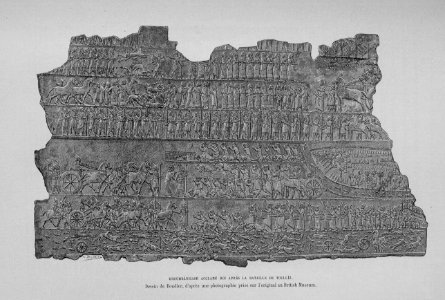 OUMMANIGASH ACCLAMÉ ROI APRÈS LA BATAILLE DE TOULLIZ.
Dessin de Boudier, d'après une photographie prise sur l'original au British Museum.